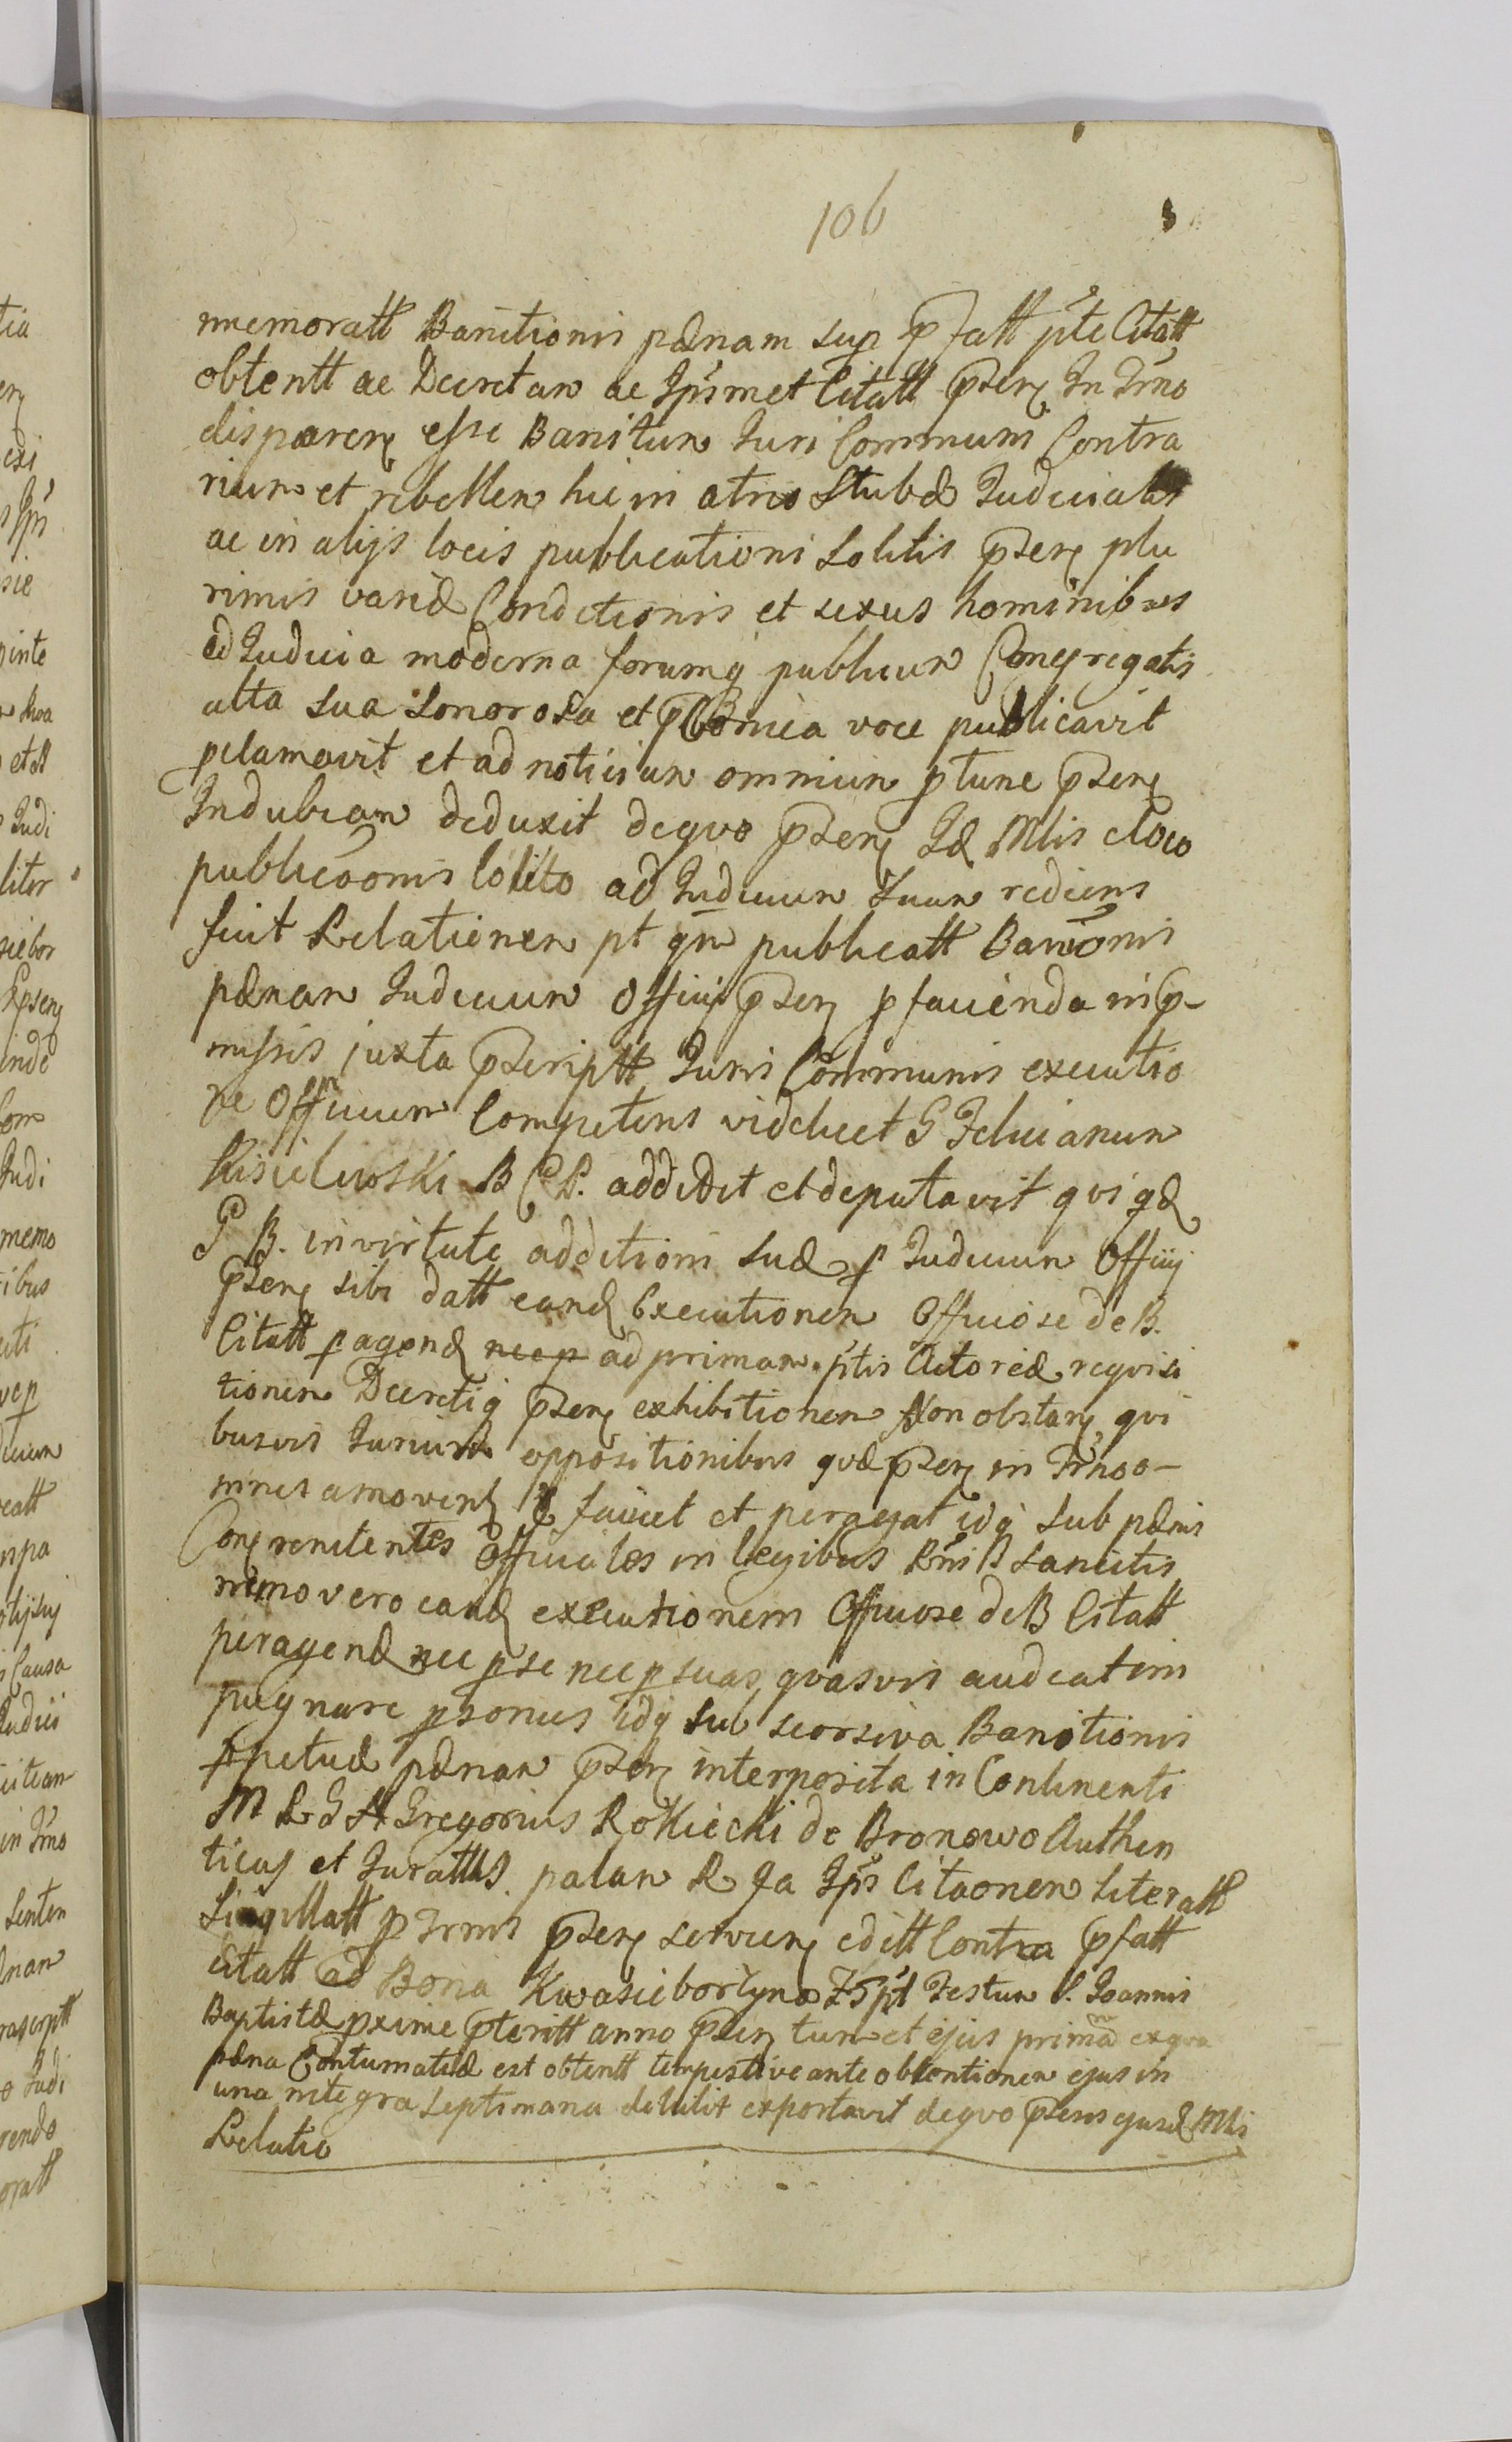 106
memoratt Banitionis pænam sup pfatt pte Citatt
obtentt ac Decretam ac Ipsmet Citatt pzen In Trno
disparen esse Banitum Juri Communi Contra
rium et rebellem hic in atrio Stubæ Judicialis
ac in alijs locis publicationi Solitis pzen plu
rimis variæ Conditionis et sexus hominibus
ad Judicia moderna forumq publicum Congregatis
alta sua Sonorosa et voce publicavit
pclamavit et ad noticiam omnium ptunc pzen
Indubiam deduxit dequo pzen Id Mlis eloco
publicaonis solito ad Judicium Suum rediens
fecit Relationem pt qm publicatt Banionis
pænam Judicium Officij pzen p facienda in p-
missis juxta pzcriptt Juris Communis executio
ne Officium Competens videlicet G Felicianum
Kisielewski B C P. addidit et deputavit qui qd
G B. in virtute additioni suæ p Judicium Officij
pzen sibi datt eand Executionem Officiose de B.
Citatt pagend nec p ad primam ptis Actoreæ requisi
tionem Decretiq pzen exhibitionem Non obstan qui
busvis Jurium oppositionibus quæ pzen in Trno o-
mnes amovent faciet et peragat idq sub pænis
Con renitentes Officiales in legibus Rni P Sancitis
nemo vero eand executionem Officiose de B Citatt
peragend nec p se nec p suas quasvis audeat im
pugnare psonas idq sub seorsiva Banitionis
ppetuæ pænam pzen interposita in Continenti
M R G H Gregorius Rokicki de Bronowo Authen
ticus et Jurattus palam R Ja Ips Citaonem Literatt
Sigillatt p Trmi pzen servien editt Contra pfatt
Citatt ad Bona Kwasieborzyno pt Festum S. Joannis
Baptistæ pxime pteritt anno pzen tum et ejus primam exqua
pæna Contumatiæ est obtentt tempestive ante obtentionem ejus in
una integra Septimana detulit exportavit dequo pzens ejusd Mlis
Relatio